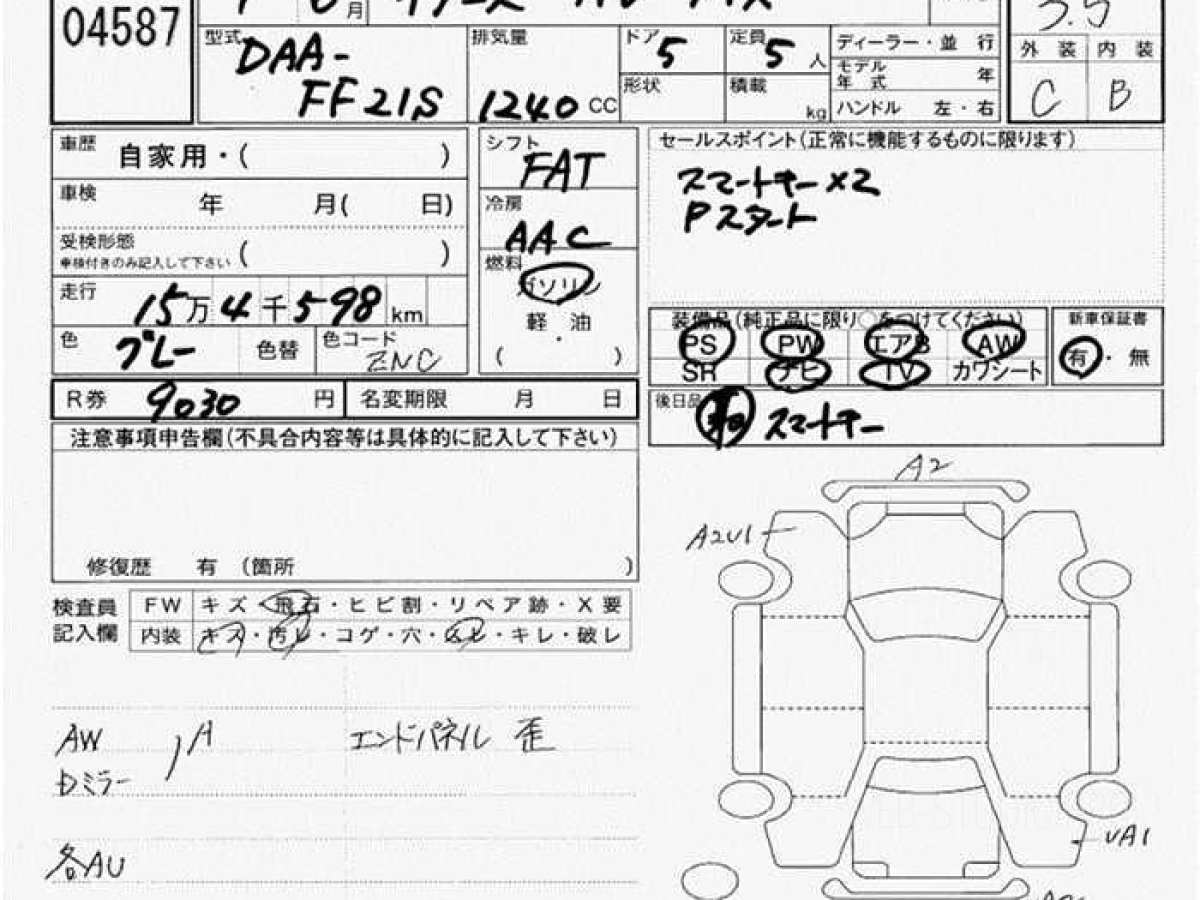 04587
月
型式 DAA-
FF21S
排気量
1240 CC
ドア 5
定員 5 人
形状
積載 kg
ディーラー・並 行
モデル年式 年
ハンドル 左・右
3.5
外 装 内 装
C B
車歴 自家用・( )
車検 年 月( 日)
受検形態 ( )
車検付きのみ記入して下さい
走行 15万4千598 km
色 グレー 色替 色コード ZNC
シフト FAT
冷房 AAC
燃料 ガソリン
軽 油
・
( )
セールスポイント(正常に機能するものに限ります)
スマートキー×2
Pスタート
装備品(純正品に限り○をつけてください)
PS PW エアB AW
SR ナビ TV カワシート
新車保証書
有・無
後日品 スマートキー
R券 9030 円 名変期限 月 日
注意事項申告欄(不具合内容等は具体的に記入して下さい)
修復歴 有 (箇所 )
検査員記入欄
FW キズ・飛石・ヒビ割・リペア跡・X要
内装 キズ・汚レ・コゲ・穴・ムレ・キレ・破レ
AW
Dミラー
A
エンドパネル 歪
各AU
A2
A2U1
UA1